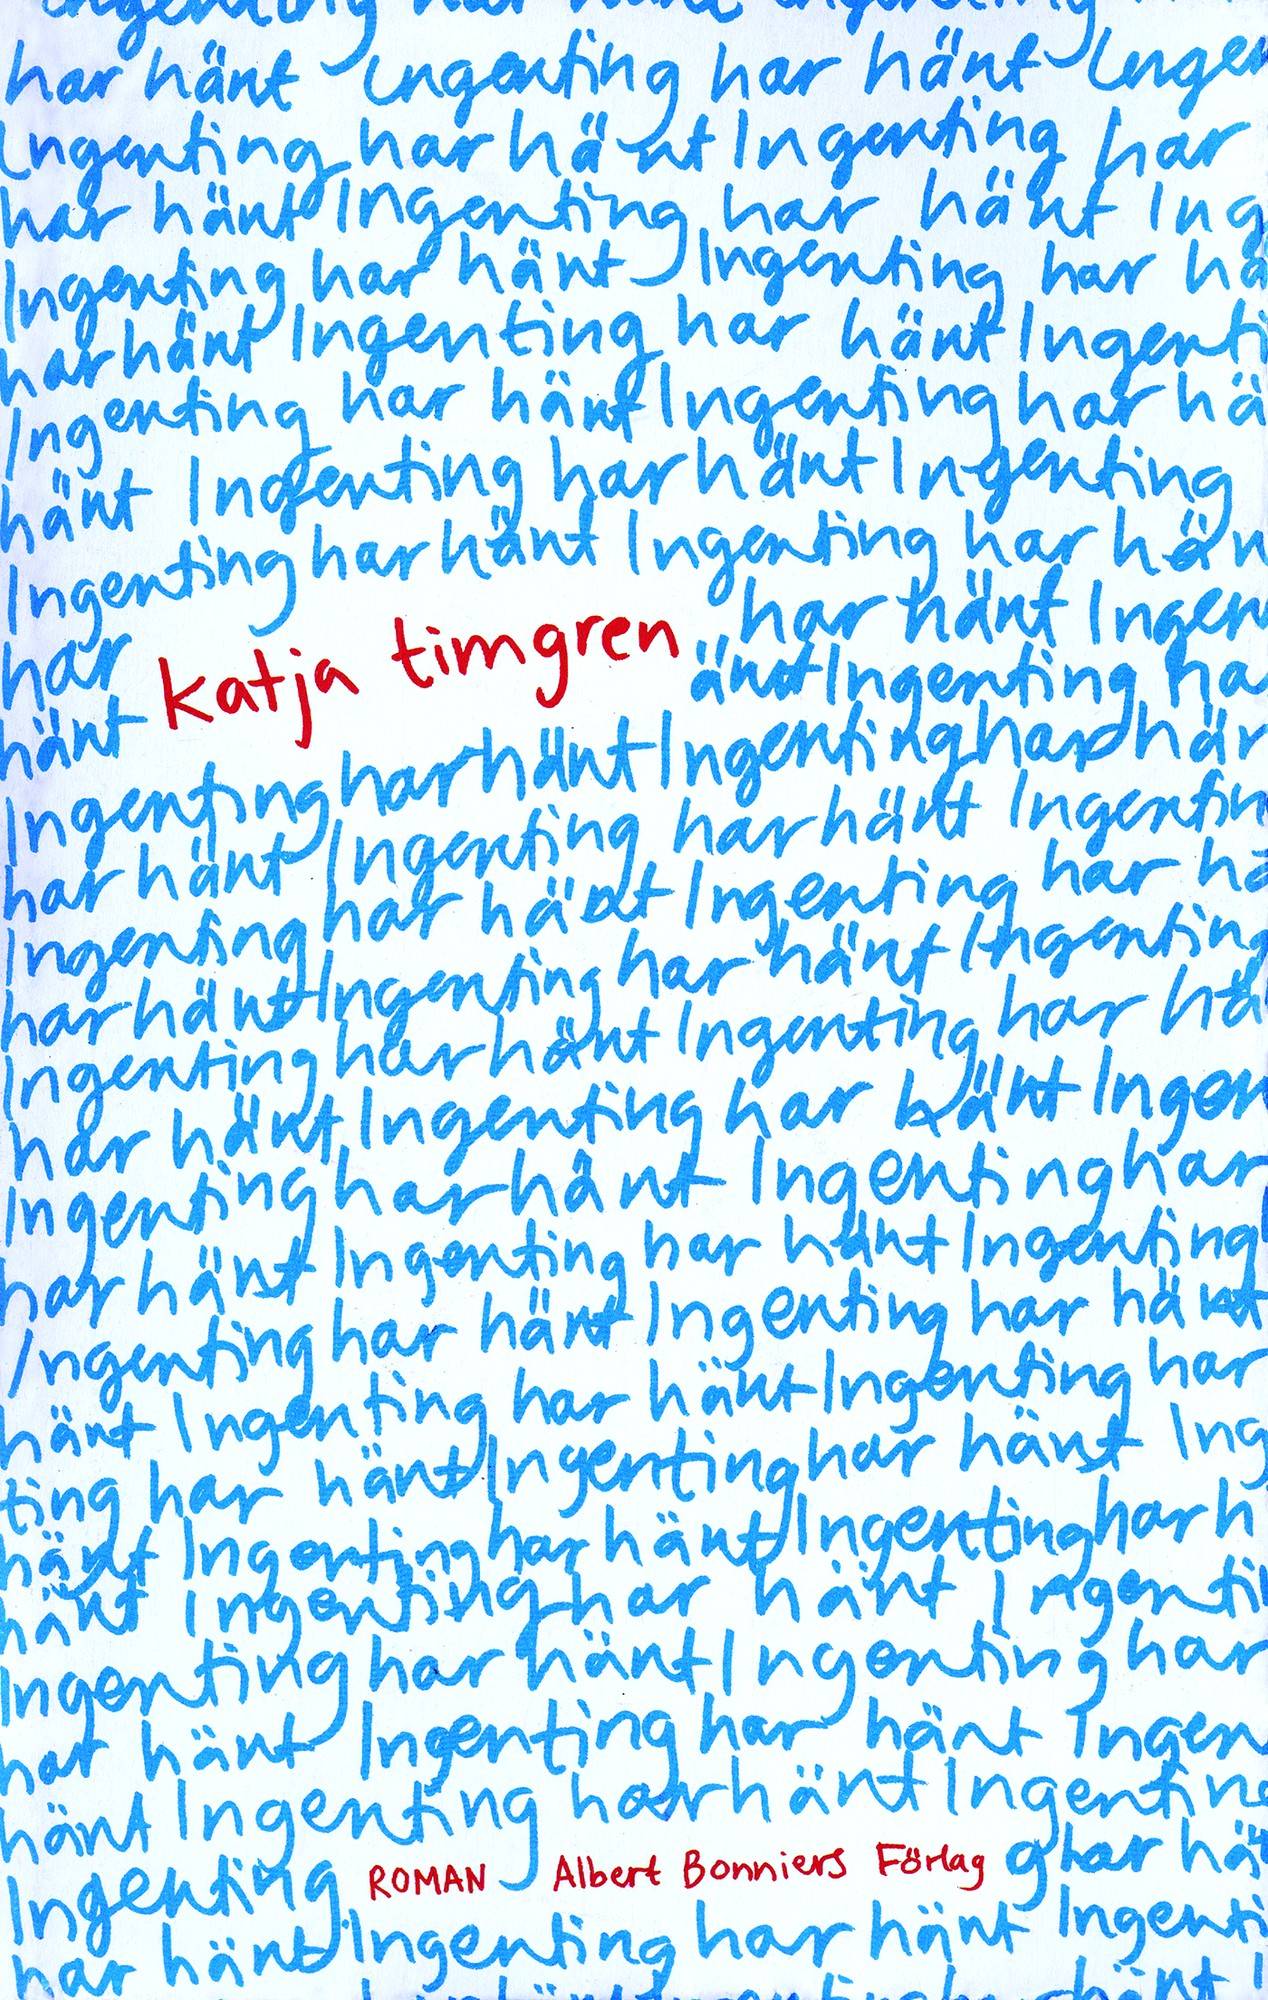 Ingenting har hänt Ingenting
har hänt Ingenting har hänt Ingen
Ingenting har hänt Ingenting har
har hänt Ingenting har hänt Ing
Ingenting har hänt Ingenting har hä
har hänt Ingenting har hänt Ingenti
Ingenting har hänt Ingenting har hä
hänt Ingenting har hänt Ingenting
Ingenting har hänt Ingenting har hän
har katja timgren har hänt Ingen
hänt änt Ingenting ha
Ingenting har hänt Ingenting har hän
har hänt Ingenting har hänt Ingentin
Ingenting har hänt Ingenting har hä
har hänt Ingenting har hänt Ingenting
Ingenting har hänt Ingenting har hä
har hänt Ingenting har hänt Ingen
Ingenting har hänt Ingenting har
har hänt Ingenting har hänt Ingenting
Ingenting har hänt Ingenting har hänt
hänt Ingenting har hänt Ingenting har
ting har hänt Ingenting har hänt Ing
hänt Ingenting har hänt Ingenting har h
hänt Ingenting har hänt Ingenti
Ingenting har hänt Ingenting har
har hänt Ingenting har hänt Ingen
hänt Ingenting har hänt Ingenting
Ingenting ROMAN Albert Bonniers Förlag g har hä
har hänt Ingenting har hänt Ingenti